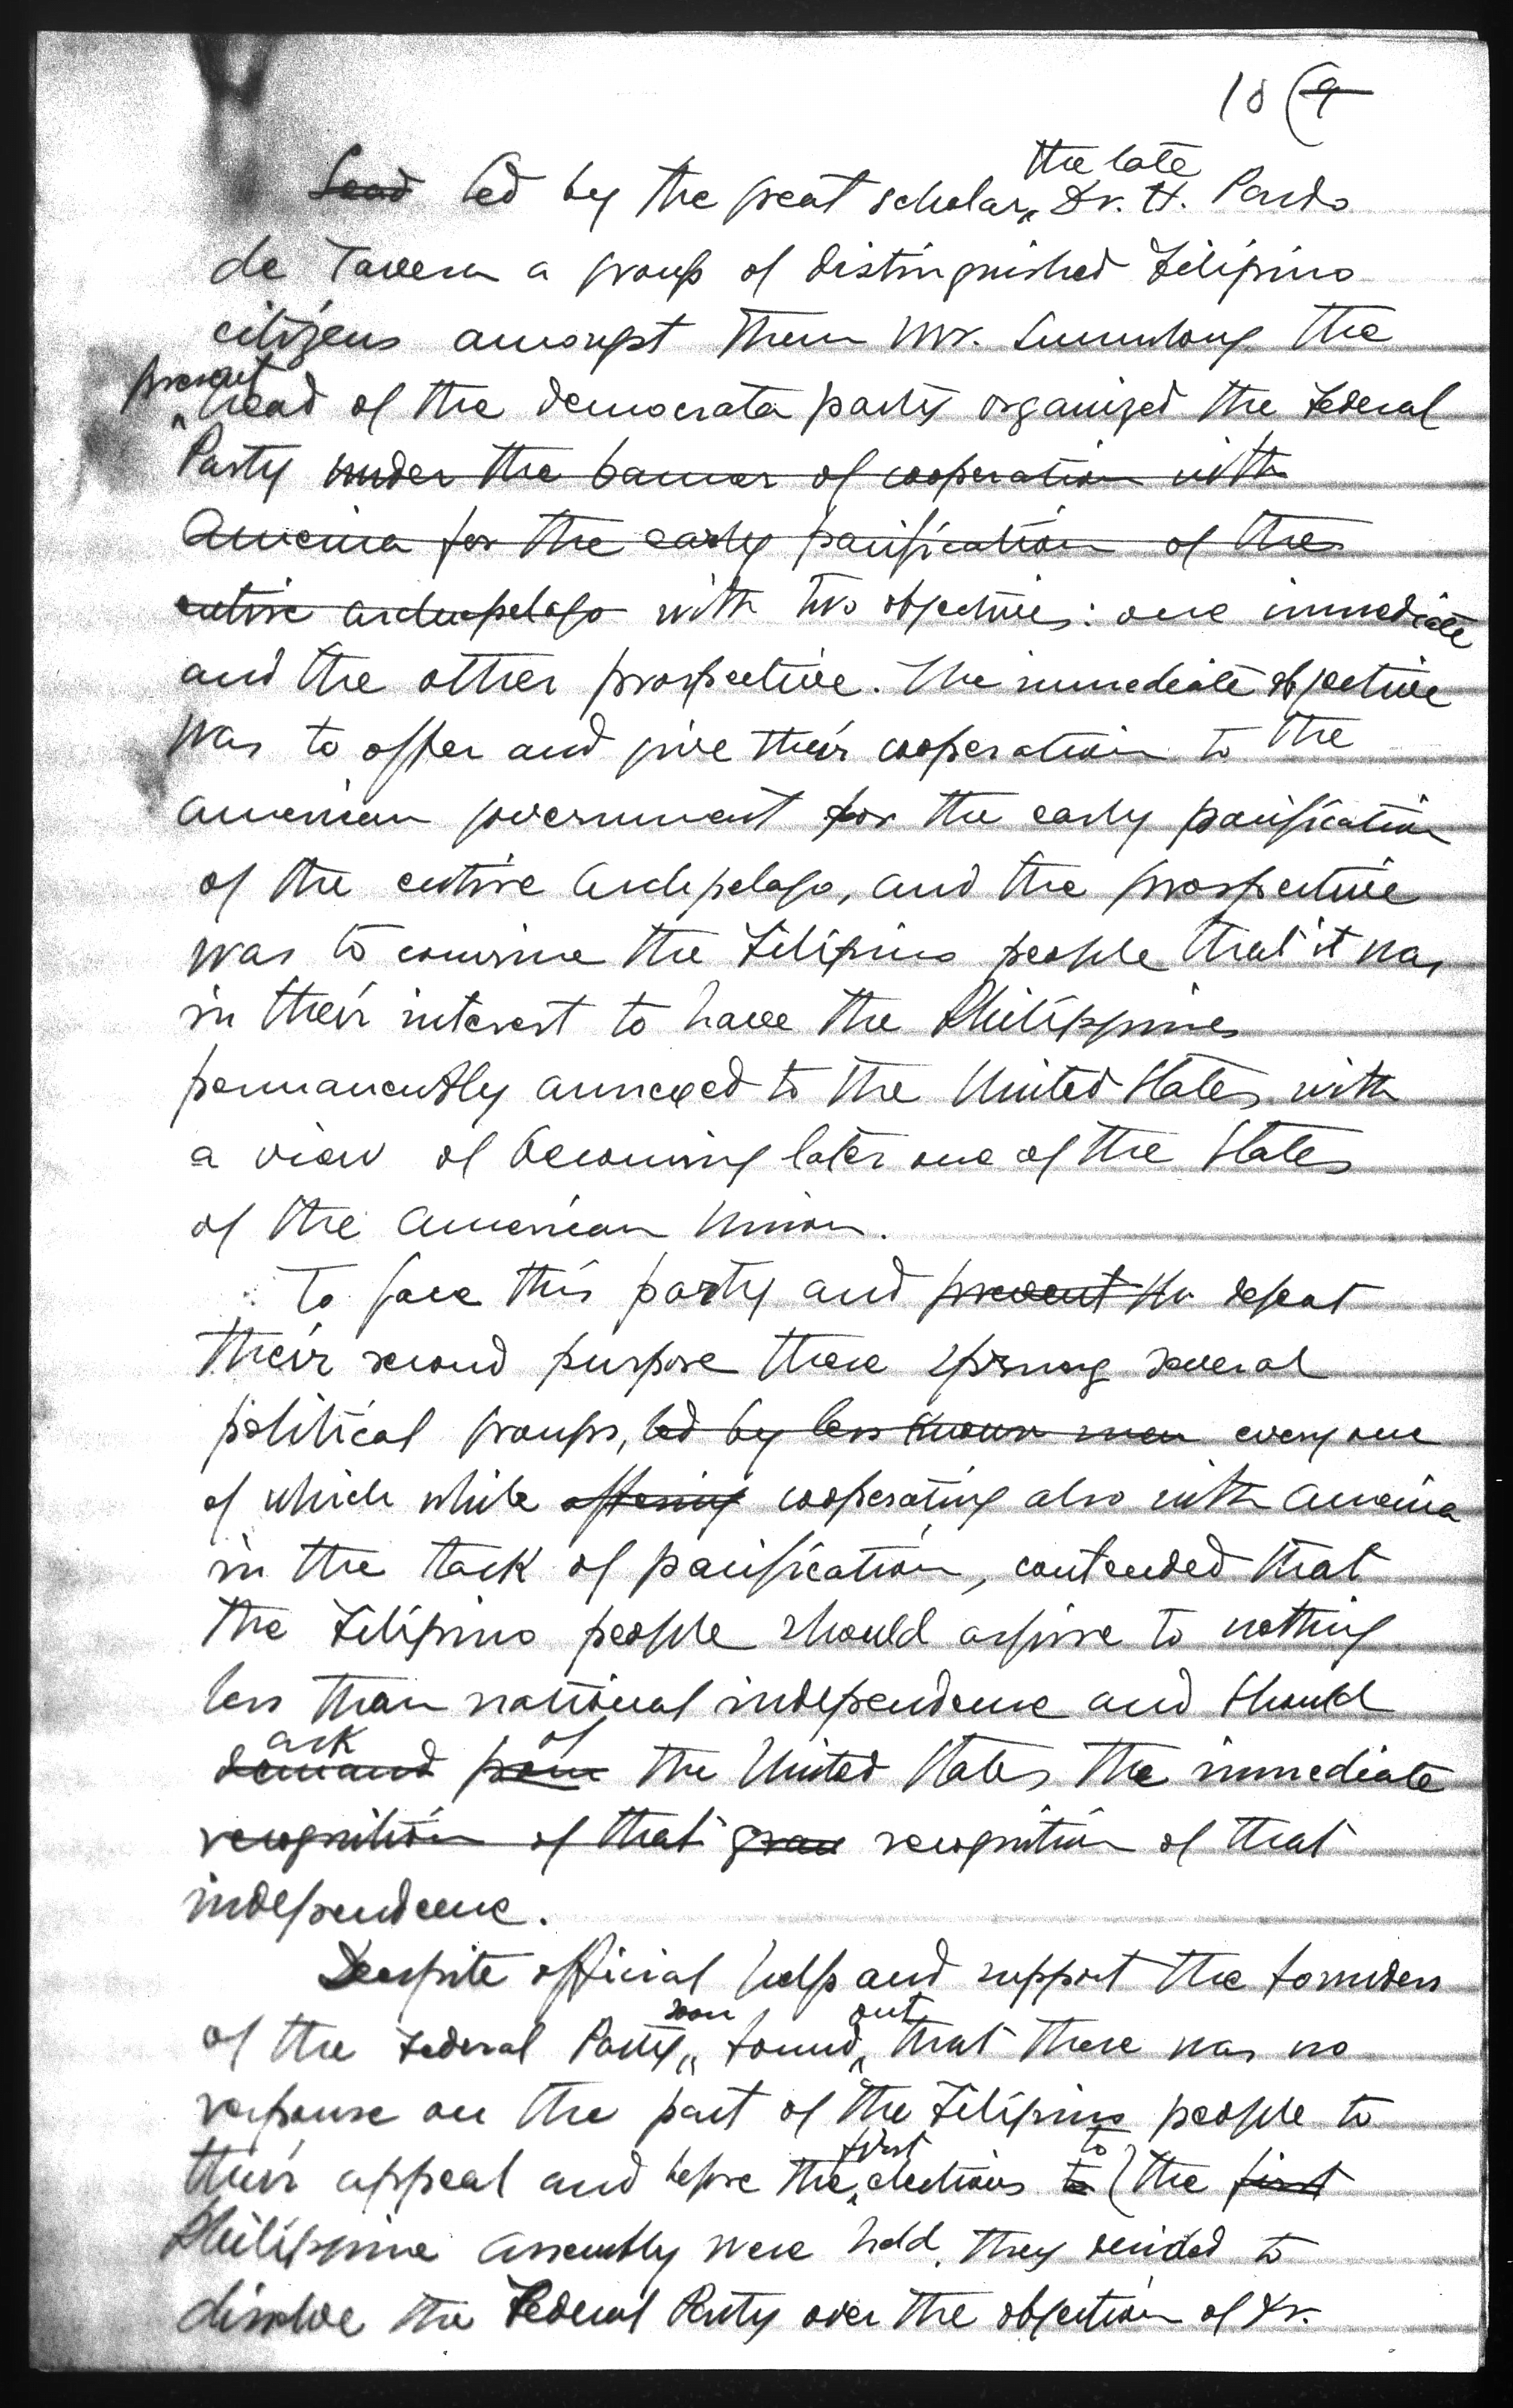 10 (9
the late
Lead led by the great scholar, Dr. H. Pardo
de Tavera a group of distinguished Filipino
citizens amongst them Mr. Sumulong the
present
head of the democrata party organized the Federal
Party under the banner of cooperation with
America for the early pacification of the
entire archepelago with two objectives: one immediate
and the other prospective. The immediate objective
was to offer and give their cooperation to the
American government for the early pacification
of the entire Archipelago, and the prospective
was to convince the Filipino people that it was
in their interest to have the Philippines
permanently annexed to the United States with
a view of becoming later one of the States
of the American Union.
To face this party and prevent the defeat
their second purpose there sprung several
political groups, led by less known men everyone
of which while offering cooperating also with America
in the task of pacification, contended that
the Filipino people should aspire to nothing
less than national independence and should
ask of
demand from the United States the immediate
recognition of that gran recognition of that
independence.
Despite official help and support the founders
soon out
of the Federal Party, found that there was no
response on the part of the Filipino people to
first to
their appeal and before the elections to (the first
Philippine Assembly were held, they decided to
dissolve the Federal Party over the objection of Dr.